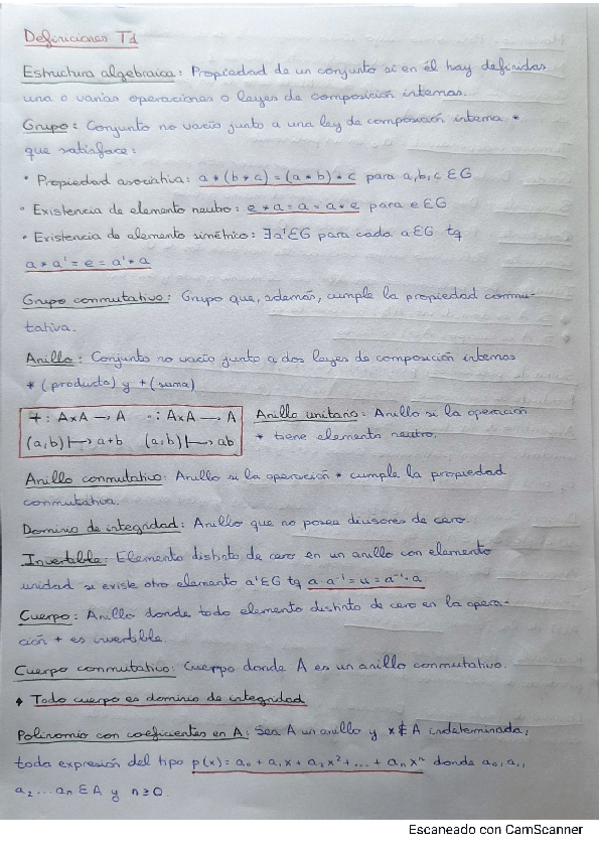 Definiciones T1
Estructura algebraica: Propiedad de un conjunto si en él hay definidas
una o varias operaciones o leyes de composición internas.
Grupo: Conjunto no vacío junto a una ley de composición interna *
que satisface:
• Propiedad asociativa: a * (b * c) = (a * b) * c para a,b,c ∈ G
• Existencia de elemento neutro: e * a = a = a * e para e ∈ G
• Existencia de elemento simétrico: ∃a'∈G para cada a∈G tq
a * a' = e = a' * a
Grupo conmutativo: Grupo que, además, cumple la propiedad conmu-
tativa.
Anillo: Conjunto no vacío junto a dos leyes de composición internas
* (producto) y + (suma)
+: A×A → A · : A×A → A
(a,b) ↦ a+b (a,b) ↦ ab
Anillo unitario: Anillo si la operación
* tiene elemento neutro.
Anillo conmutativo: Anillo si la operación * cumple la propiedad
conmutativa.
Dominio de integridad: Anillo que no posea divisores de cero.
Invertible: Elemento distinto de cero en un anillo con elemento
unidad si existe otro elemento a'∈G tq a·a⁻¹ = u = a⁻¹·a
Cuerpo: Anillo donde todo elemento distinto de cero en la opera-
ción + es invertible.
Cuerpo conmutativo: Cuerpo donde A es un anillo conmutativo.
♦ Todo cuerpo es dominio de integridad
Polinomio con coeficientes en A: Sea A un anillo y x ∉ A indeterminada,
toda expresión del tipo p(x) = a₀ + a₁x + a₂x² + ... + aₙxⁿ donde a₀, a₁,
a₂ ... aₙ ∈ A y n ≥ 0.
Escaneado con CamScanner